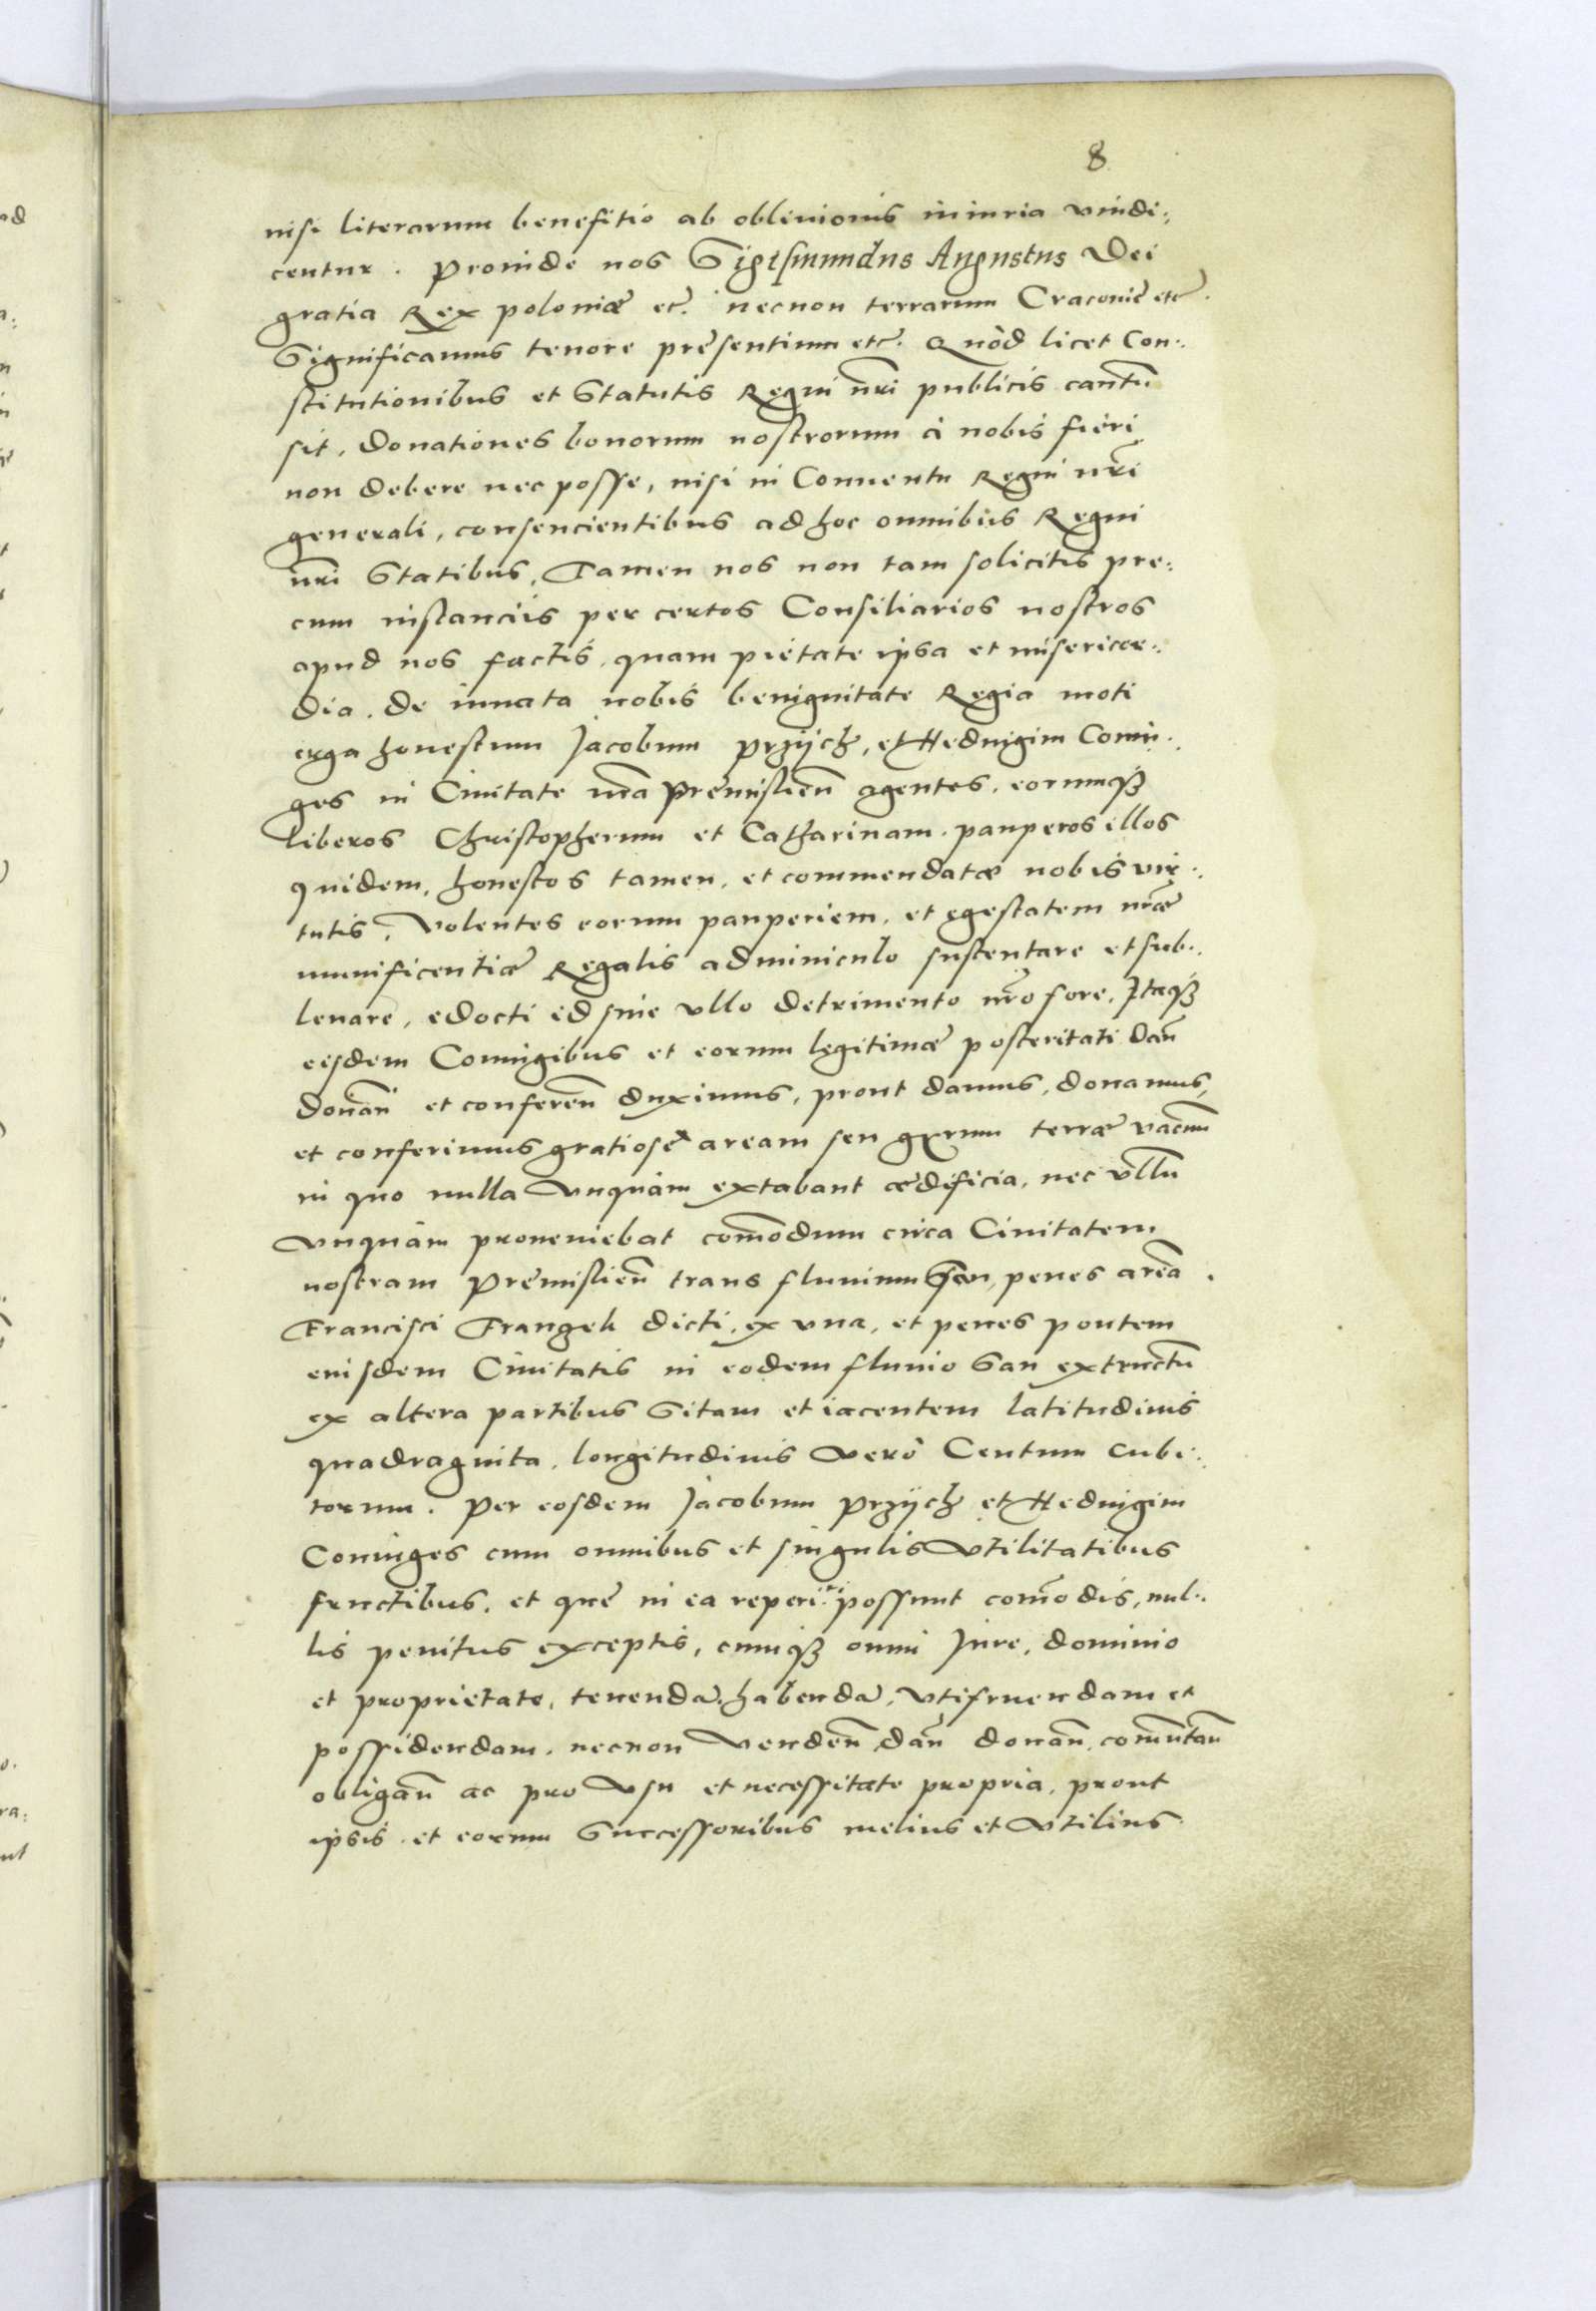 8
nisi literarum benefitio ab obliuionis iniuria vindi:
centur. Proinde nos Sigismundus Augustus Dei
gratia Rex poloniæ etc. necnon terrarum Cracouiæ etc.
Significamus tenore presentium etc. Quòd licet Con:
stitutionibus et Statutis Regni nr̃i publicis cautũ
sit, donationes bonorum nostrorum à nobis fieri
non debere nec posse, nisi in Conuentu Regni nr̃i
generali, consencientibus ad hoc omnibus Regni
nr̃i Statibus, Tamen nos non tam solicitis pre:
cum instanciis per certos Consiliarios nostros
apud nos factis, quam pietate ipsa et misericor:
dia, de innata nobis benignitate Regia moti
erga honestum Jacobum Przÿch, et Heduigim Coniu:
ges in Ciuitate nr̃a Præmislieñ agentes, eorumqꝫ
liberos Christopherum et Catharinam, pauperos illos
quidem, honestos tamen, et commendatæ nobis vir:
tutis, Volentes eorum pauperiem, et egestatem nr̃æ
munificentiæ Regalis adminiculo sustentare et sub:
leuare, edocti id sine vllo detrimento nr̃o fore, Itaqꝫ
eisdem Coniugibus et eorum legitimæ posteritati dañ
donañ et confereñ duximus, prout damus, donamus,
et conferimus gratiosè aream seu gxrum terræ vacuũ
in quo nulla vnquàm extabant ædificia, nec vllũ
vnquàm proueniebat com̃odum circa Ciuitatem
nostram Præmislieñ trans fluuium San, penes areã
Francisci Frangeli dicti, ex vna, et penes pontem
eiusdem Ciuitatis in eodem fluuio San extructũ
ex altera partibus Sitam et iacentem latitudinis
quadraginta, longitudinis verò Centum cubi:
torum. Per eosdem Jacobum Przÿch et Heduigim
Coniuges cum omnibus et singulis vtilitatibus
fructibus, et quæ in ea reperiri possunt com̃odis, nul:
lis penitus exceptis, cumqꝫ omni Jure, dominio
et proprietate, tenendã, habendã, vtifruendam et
possidendam, necnon vendeñ dañ donañ, com̃utañ
obligañ ac pro vsu et necessitate propria, prout
ipsis et eorum Successoribus melius et vtilius